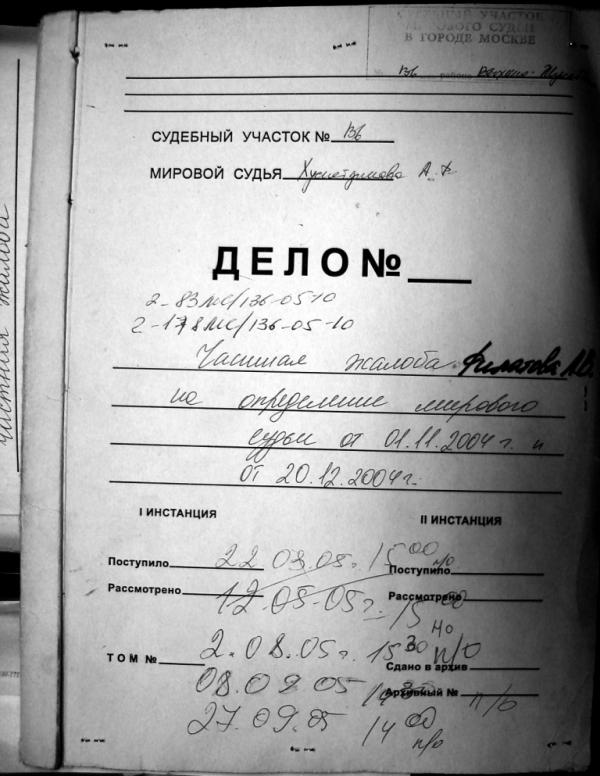 СУДЕБНЫЙ УЧАСТОК
МИРОВОГО СУДЬИ
В ГОРОДЕ МОСКВЕ
136 района
СУДЕБНЫЙ УЧАСТОК № 136
МИРОВОЙ СУДЬЯ А. Ф
ДЕЛО №
2-83МС/136-05-10
2-178МС/136-05-10
Частная жалоба Филатова
на определение мирового
судьи от 01.11.2004 г. и
от 20.12.2004 г.
I ИНСТАНЦИЯ
II ИНСТАНЦИЯ
Поступило 22.03.05 г. 15 00 п/о
Поступило
Рассмотрено 12.05.05 г. 15 00
Рассмотрено
но
ТОМ № 2.08.05 г. 15 30 п/о
Сдано в архив
08.09.05 п/о
Архивный №
27.09.05 14 00
п/о
частная жалоба